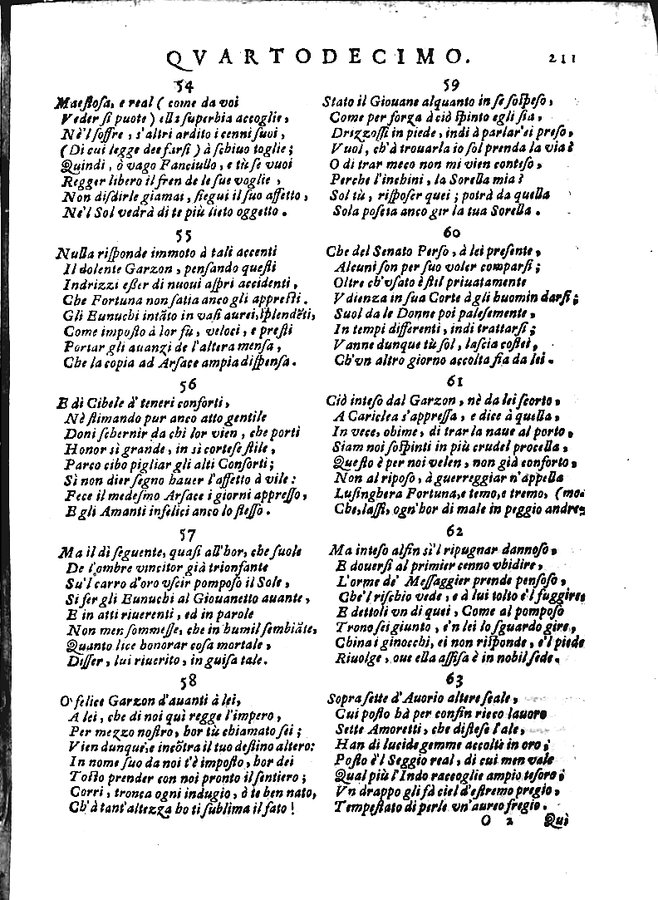 QVARTODECIMO. 211
54
Maestosa, e real (come da voi
Veder si puote) ella superbia accoglie,
Nè'l soffre, s'altri ardito i cenni suoi,
(Di cui legge dee farsi) à schiuo toglie;
Quindi, ò vago Fanciullo, e tù se vuoi
Regger libero il fren de le sue voglie,
Non disdirle giamai, siegui il suo affetto,
Ne'l Sol vedrà di te più lieto oggetto.
55
Nulla risponde immoto à tali accenti
Il dolente Garzon, pensando questi
Indrizzi esser di nuoui aspri accidenti,
Che Fortuna non satia anco gli appresti.
Gli Eunuchi intãto in vasi aurei, splendẽti,
Come imposto à lor fù, veloci, e presti
Portar gli auanzi de l'altera mensa,
Che la copia ad Arsace ampia dispensa.
56
E di Cibele d' teneri conforti,
Nè stimando pur anco atto gentile
Doni schernir da chi lor vien, che porti
Honor sì grande, in sì cortese stile,
Parco cibo pigliar gli alti Consorti;
Sì non dier segno hauer l'affetto à vile:
Fece il medesmo Arsace i giorni appresso,
E gli Amanti infelici anco lo stesso.
57
Ma il dì seguente, quasi all'hor, che suole
De l'ombre vincitor già trionfante
Su'l carro d'oro vscir pomposo il Sole,
Si fer gli Eunuchi al Giouanetto auante,
E in atti riuerenti, ed in parole
Non men sommesse, che in humil sembiãte,
Quanto lice honorar cosa mortale,
Disser, lui riuerito, in guisa tale.
58
O' felice Garzon d'auanti à lei,
A lei, che di noi quì regge l'impero,
Per mezzo nostro, hor tù chiamato sei;
Vien dunque, e incõtra il tuo destino altero:
In nome suo da noi t'è imposto, hor dei
Tosto prender con noi pronto il sentiero;
Corri, tronca ogni indugio, ò te ben nato,
Ch'à tant'altezza ho ti sublima il fato!
59
Stato il Giouane alquanto in se sospeso,
Come per forza à ciò spinto egli sia,
Drizzossi in piede, indi à parlar'ei preso,
Vuol, ch'à trouarla io sol prenda la via?
O di trar meco non mi vien conteso,
Perche l'inchini, la Sorella mia?
Sol tù, risposer quei; potrà da quella
Sola poscia anco gir la tua Sorella.
60
Che del Senato Perso, à lei presente,
Alcuni son per suo voler comparsi;
Oltre ch'vsato è stil priuatamente
Vdienza in sua Corte à gli huomin darsi;
Suol da le Donne poi palesemente,
In tempi differenti, indi trattarsi;
Vanne dunque tù sol, lascia costei,
Ch'vn altro giorno accolta fia da lei.
61
Ciò inteso dal Garzon, nè da lei scorto,
A Cariclea s'appressa, e dice à quella,
In vece, ohime, di trar la naue al porto,
Siam noi sospinti in più crudel procella,
Questo è per noi velen, non già conforto,
Non al riposo, à guerreggiar n'appella
Lusinghera Fortuna, e temo, e tremo, (mo.
Che, lassi, ogn'hor di male in peggio andre-
62
Ma inteso alfin sì'l ripugnar dannoso,
E douersi al primier cenno vbidire,
L'orme de' Messaggier prende pensoso,
Che'l rischio vede, e à lui tolto e'l fuggire,
E dettoli vn di quei, Come al pomposo
Trono sei giunto, e'n lei lo sguardo gire,
China i ginocchi, ei non risponde, e'l piede
Riuolge, oue ella assisa è in nobil sede.
63
Sopra sette d'Auorio altere scale,
Cui posto hà per confin ricco lauoro
Sette Amoretti, che distese l'ale,
Han di lucide gemme accolti in oro;
Posto è'l Seggio real, di cui men vale
Qual più l'Indo raccoglie ampio tesoro;
Vn drappo gli fà ciel d'estremo pregio,
Tempestato di perle vn'aureo fregio.
O 2 Quì